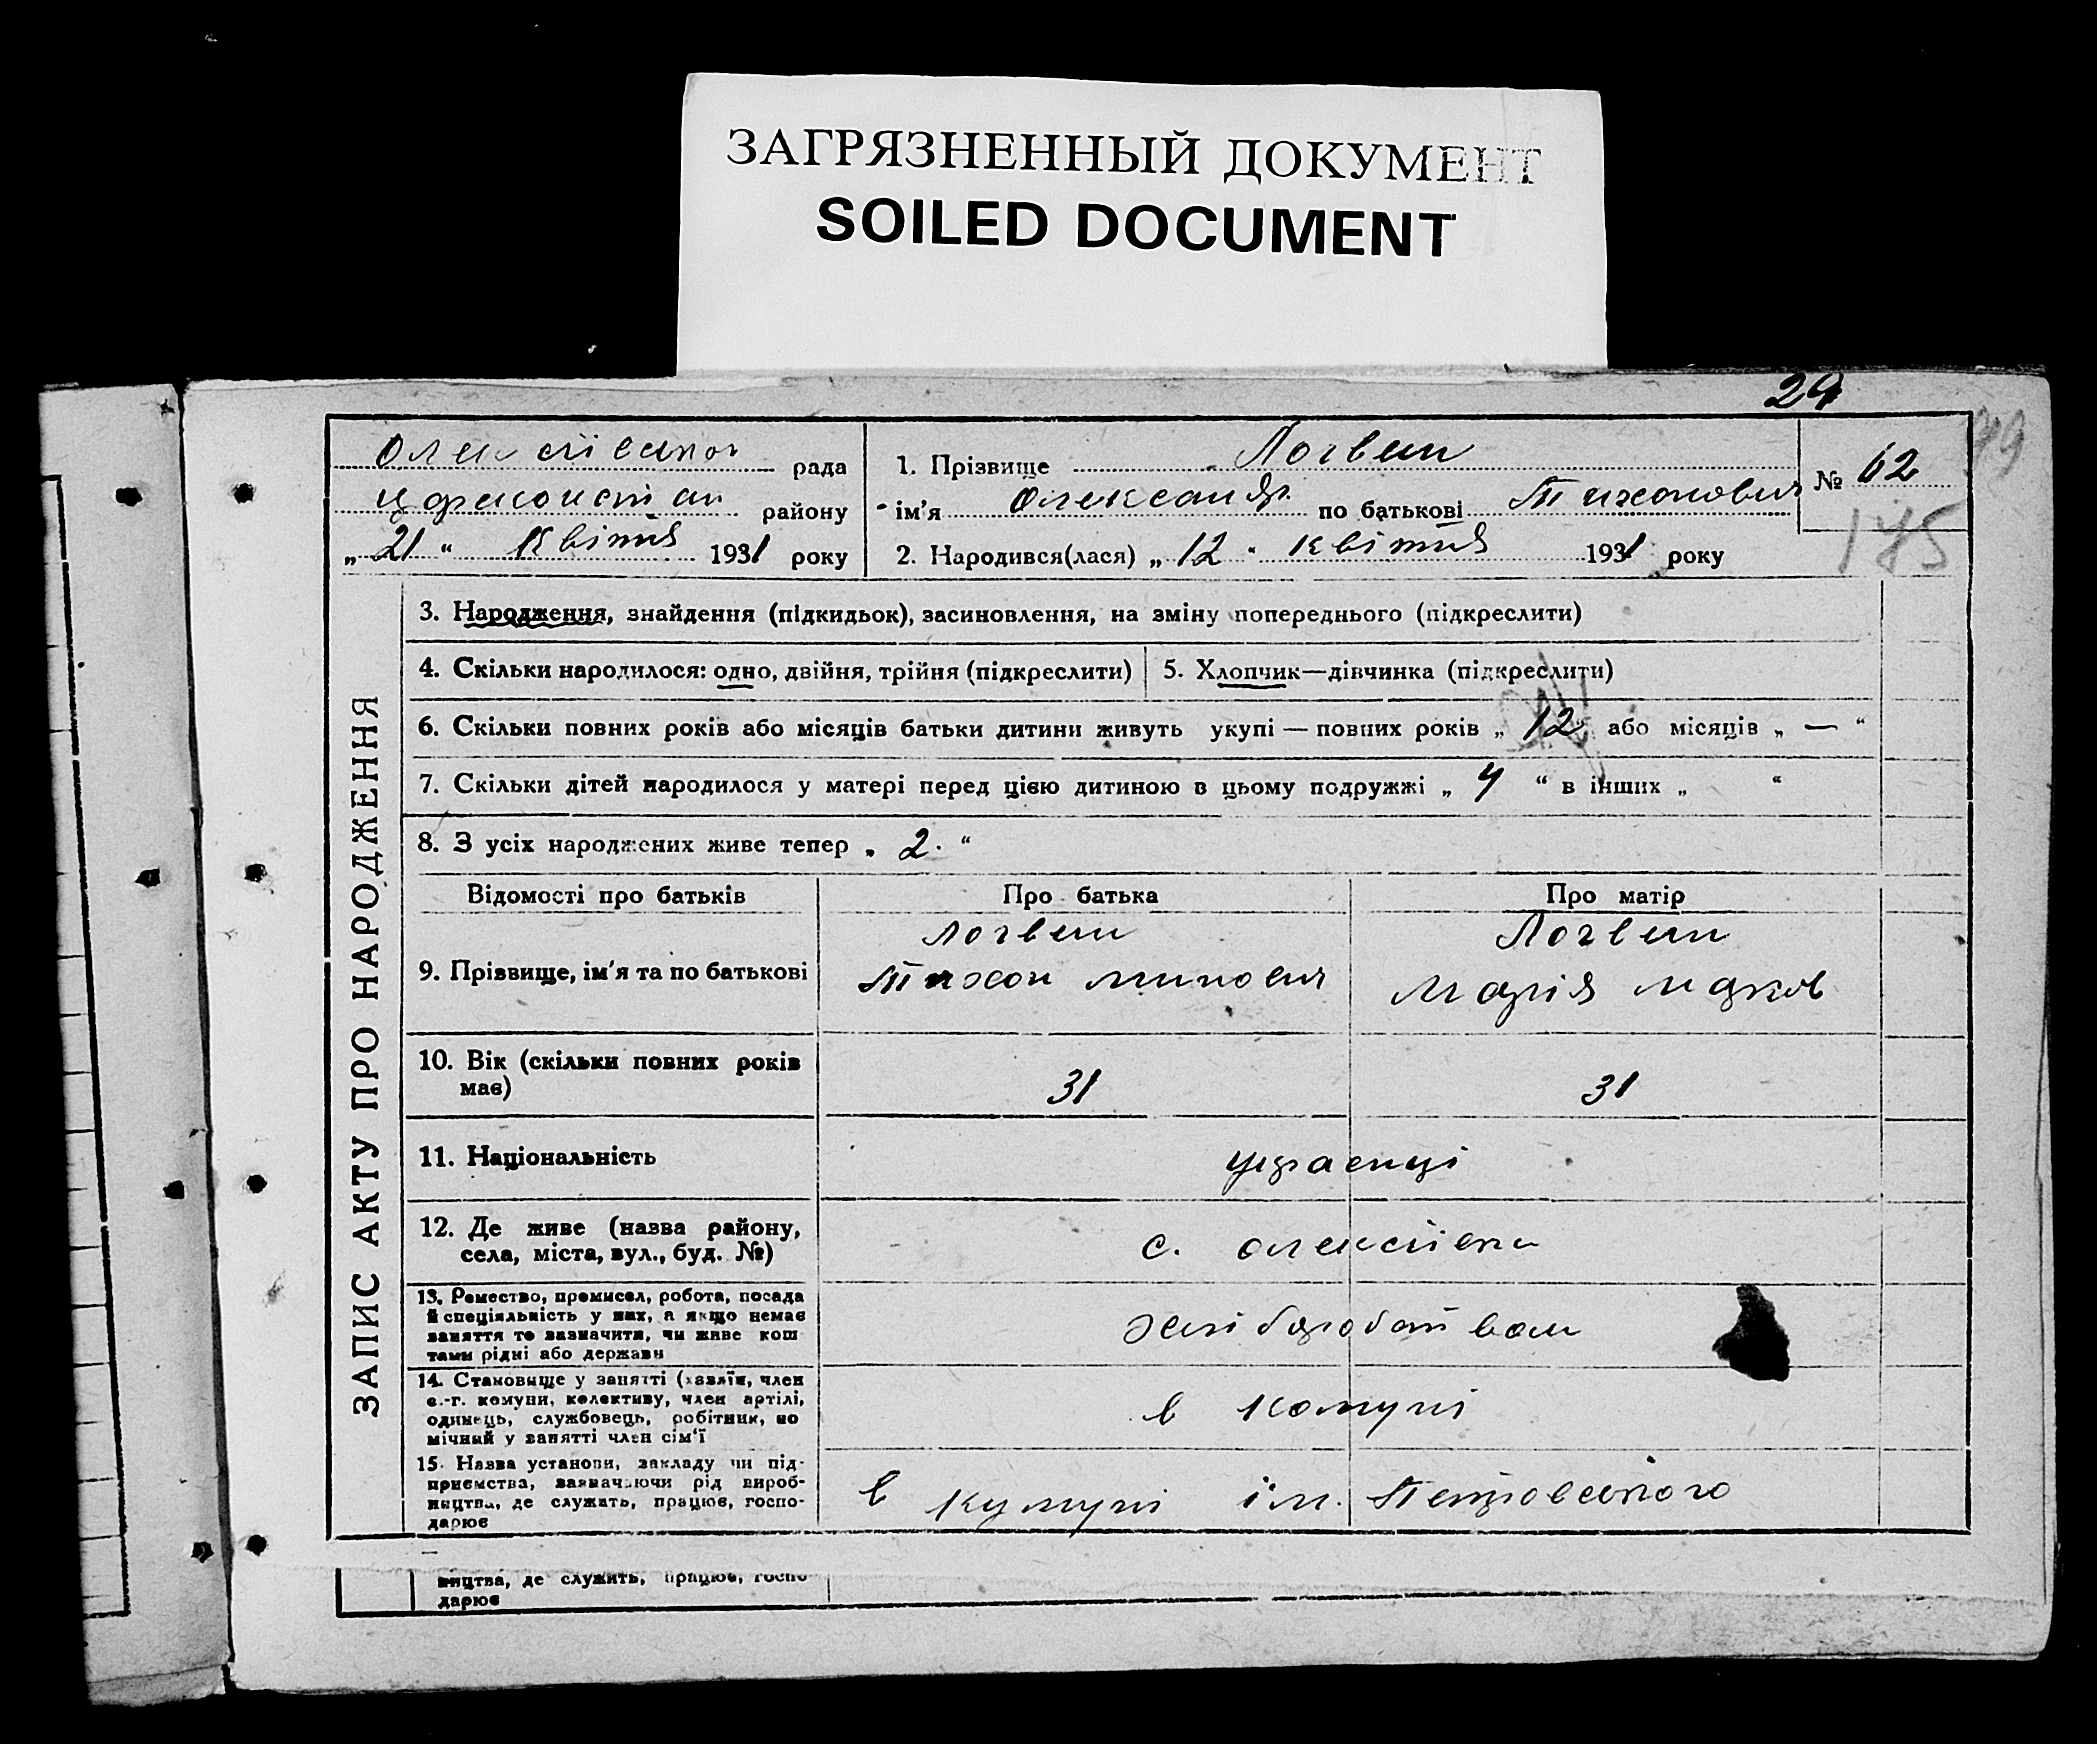 ЗАГРЯЗНЕННЫЙ ДОКУМЕНТ
SOILED DOCUMENT
24
79
Олексіївської рада
району
„ 21 “ Квітня 1931 року
1. Прізвище Логвин
ім'я Олександр по батькові Тихонович
2. Народився(лася) „ 12 “ Квітня 1931 року
№ 62
175
ЗАПИС АКТУ ПРО НАРОДЖЕННЯ
3. Народження, знайдення (підкидьок), засиновлення, на зміну попереднього (підкреслити)
4. Скільки народилося: одно, двійня, трійня (підкреслити)
5. Хлопчик—дівчинка (підкреслити)
6. Скільки повних років або місяців батьки дитини живуть укупі — повних років „ 12 “ або місяців „ — “
7. Скільки дітей народилося у матері перед цією дитиною в цьому подружжі „ 4 “ в інших „ “
8. З усіх народжених живе тепер „ 2. “
Відомості про батьків
Про батька
Про матір
9. Прізвище, ім'я та по батькові
Логвин
Тихон
Логвин
Марія Марков
10. Вік (скільки повних років
має)
31
31
11. Національність
українці
12. Де живе (назва району,
села, міста, вул., буд. №)
с. Олексіївка
13. Ремество, промисел, робота, посада
й спеціяльність у них, а якщо немає
заняття то зазначити, чи живе кош
тами рідні або держави
хліборобством
14. Становище у занятті (хазяїн, член
с.-г. комуни, колективу, член артілі,
одинець, службовець, робітник, по
мічний у занятті член сім'ї
в комуні
15. Назва установи, закладу чи під-
приємства, зазначаючи рід вироб-
ництва, де служить, працює, госпо-
дарює
в кумуні ім. Петровського
ництва, де служить, працює, госпо
дарює